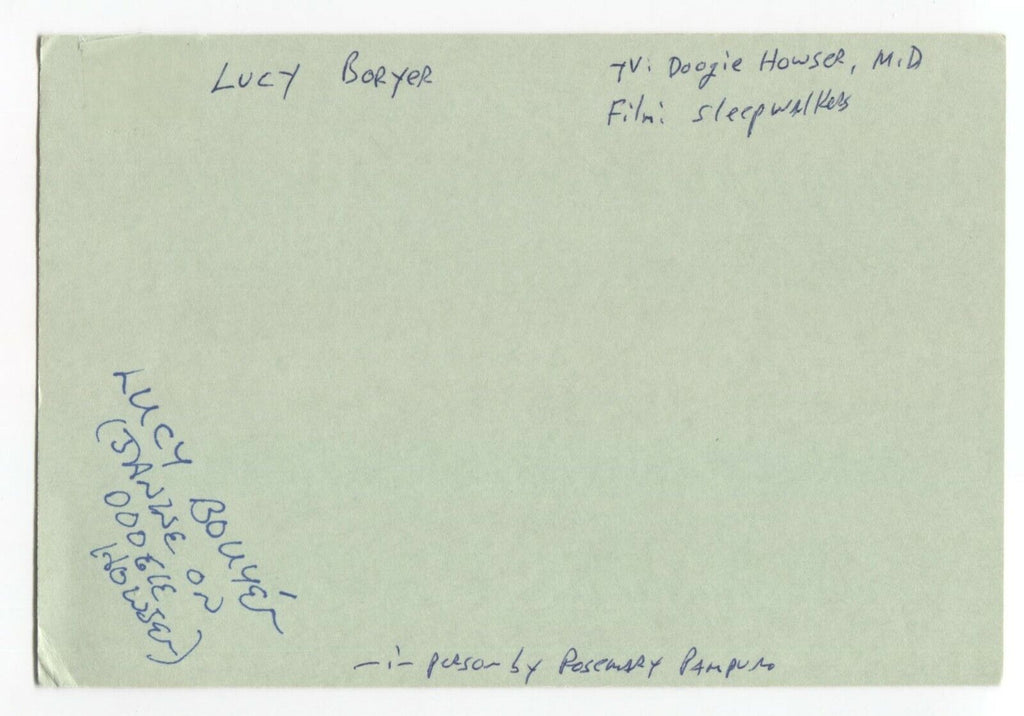 LUCY BORYER
TV: Doogie Howser, M.D
Film: Sleepwalkers
LUCY BOUYER
(JANINE ON
DOOGIE
HOWSER)
-in person by ROSEMARY